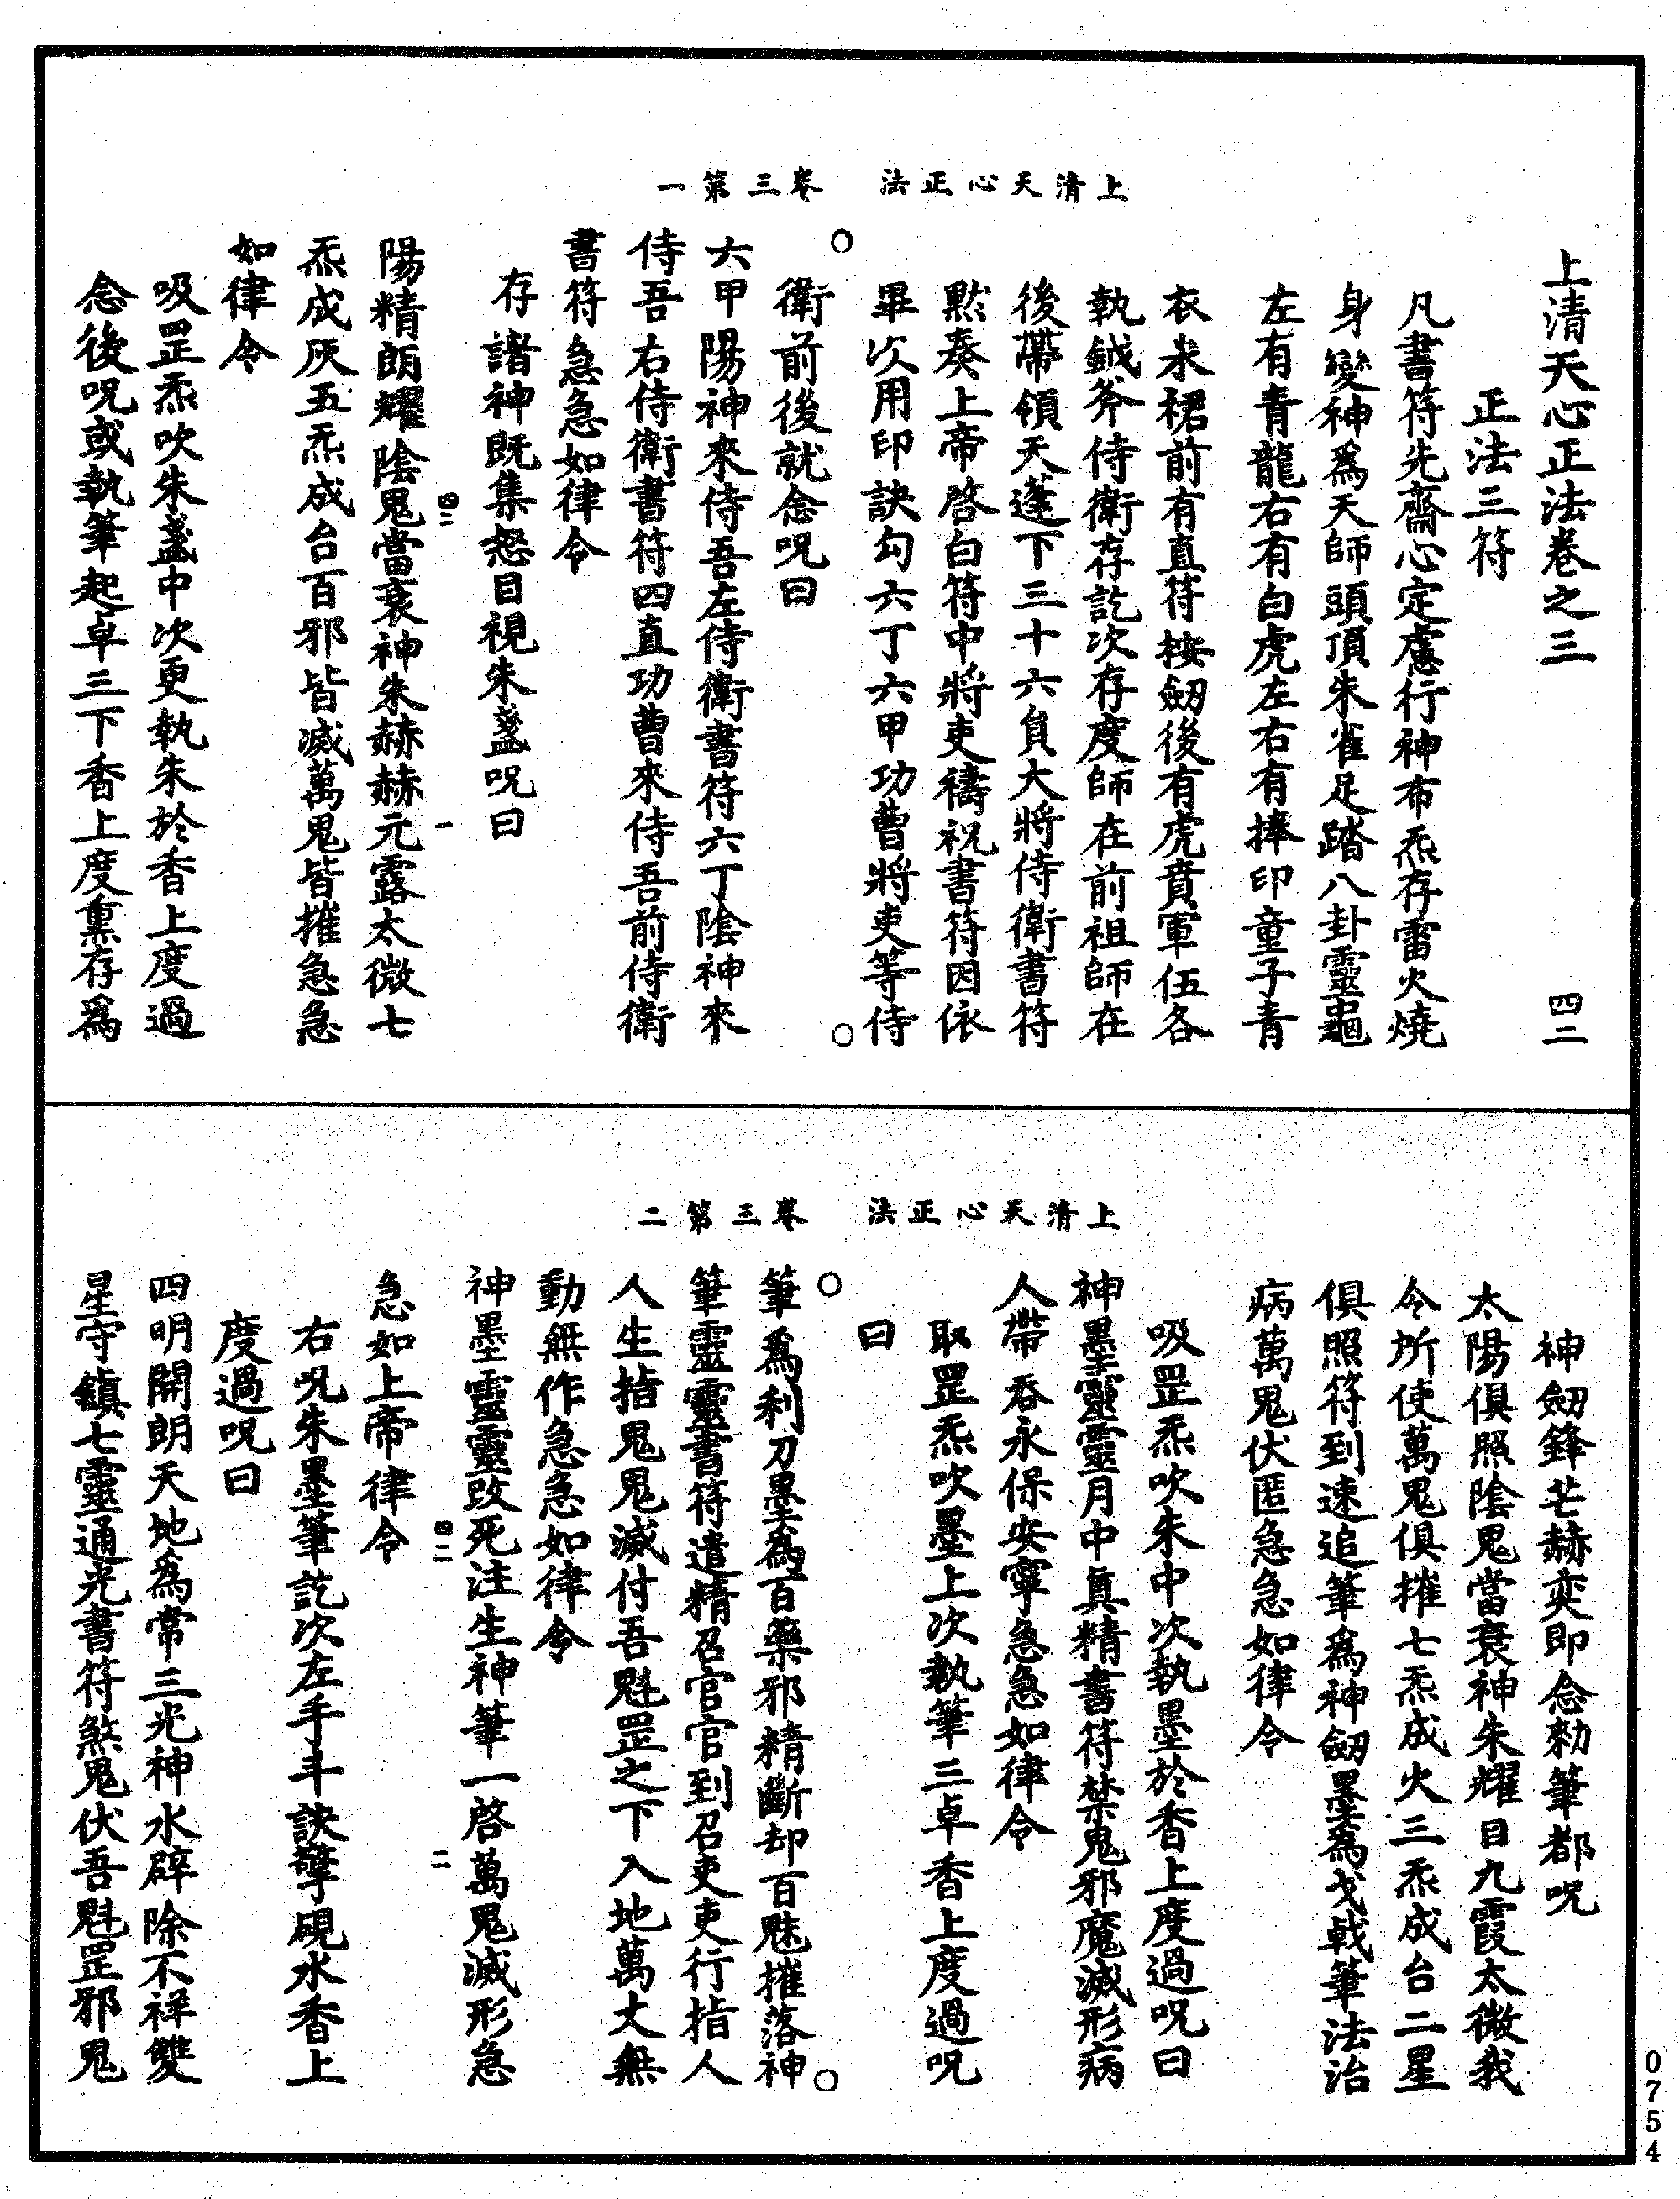 上清天心正法　卷三第一
上清天心正法卷之三　四二
正法三符
凡書符先齋心定慮行神布炁存雷火燒
身變神爲天師頭頂朱雀足踏八卦靈龜
左有青龍右有白虎左右有捧印童子青
衣米裙前有直符按劒後有虎賁軍伍各
執鉞斧侍衛存訖次存度師在前祖師在
後帶領天蓬下三十六員大將侍衛書符
黙奏上帝啓白符中將吏禱祝書符因依
畢次用印訣勾六丁六甲功曹將吏等侍
衛前後就念呪曰
六甲陽神來侍吾左侍衛書符六丁陰神來
侍吾右侍衛書符四直功曹來侍吾前侍衛
書符急急如律令
存諸神既集怒目視朱盞呪曰
四二　一
陽精朗耀陰鬼當衰神朱赫赫元露太微七
炁成灰五炁成台百邪皆滅萬鬼皆摧急急
如律令
吸罡炁吹朱盞中次更執朱於香上度過
念後呪或執筆起卓三下香上度熏存爲
上清天心正法　卷三第二
神劒鋒芒赫奕即念勑筆都呪
太陽俱照陰鬼當衰神朱耀目九霞太微我
令所使萬鬼俱摧七炁成火三炁成台二星
俱照符到速追筆爲神劒墨爲戈戟筆法治
病萬鬼伏匿急急如律令
吸罡炁吹朱中次執墨於香上度過呪曰
神墨靈靈月中眞精書符禁鬼邪魔滅形病
人帶吞永保安寧急急如律令
取罡炁吹墨上次執筆三卓香上度過呪
曰
筆爲利刀墨爲百藥邪精斷却百魅摧落神
筆靈靈書符遣精召官官到召吏吏行指人
人生指鬼鬼滅付吾魁罡之下入地萬丈無
動無作急急如律令
神墨靈靈改死注生神筆一啓萬鬼滅形急
四二　二
急如上帝律令
右呪朱墨筆訖次左手斗訣擎硯水香上
度過呪曰
四明開朗天地爲常三光神水辟除不祥雙
星守鎮七靈通光書符煞鬼伏吾魁罡邪鬼
0754